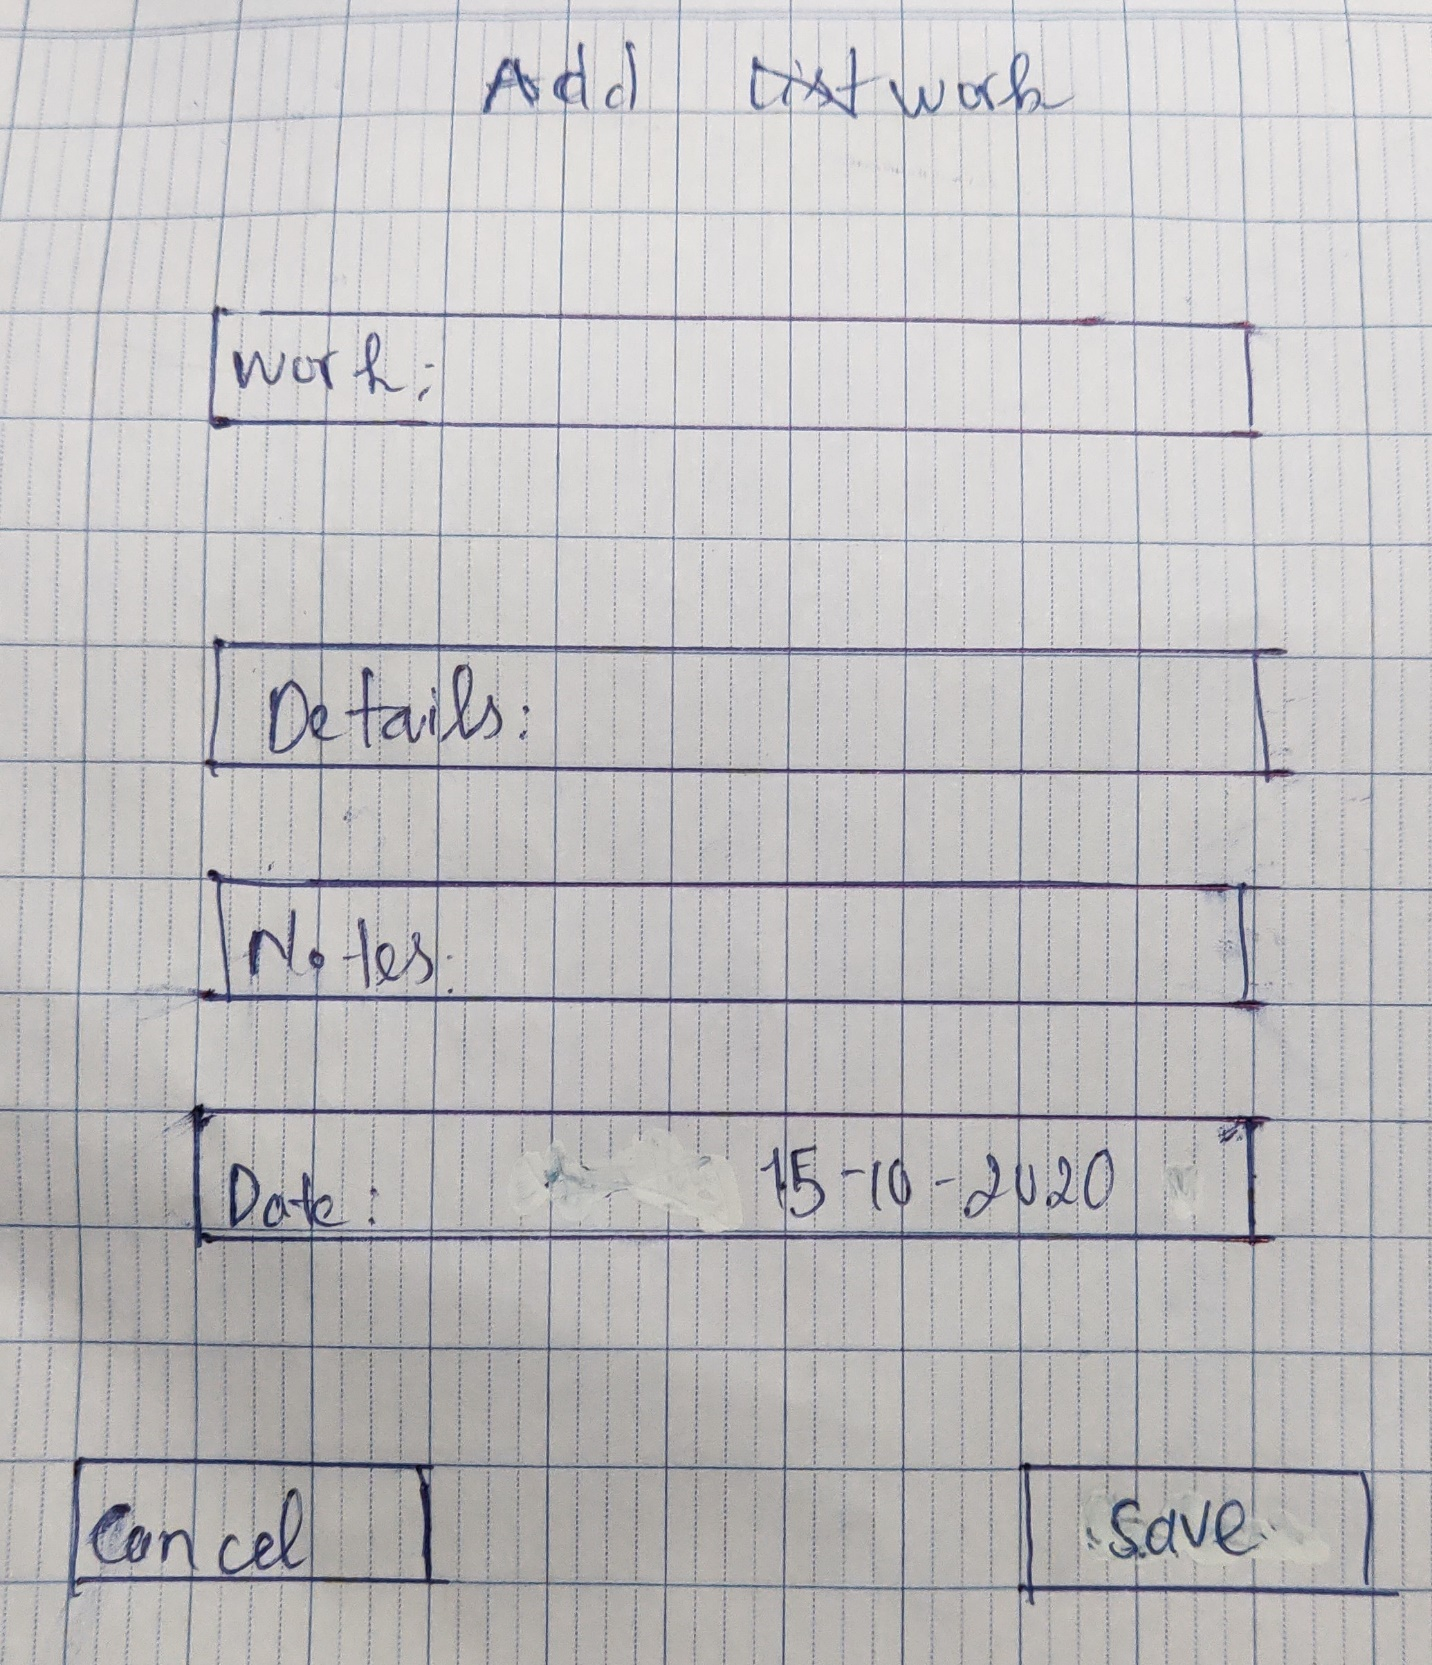 Add List work
Work:
Details:
Notes:
Date: 15-10-2020
Cancel Save